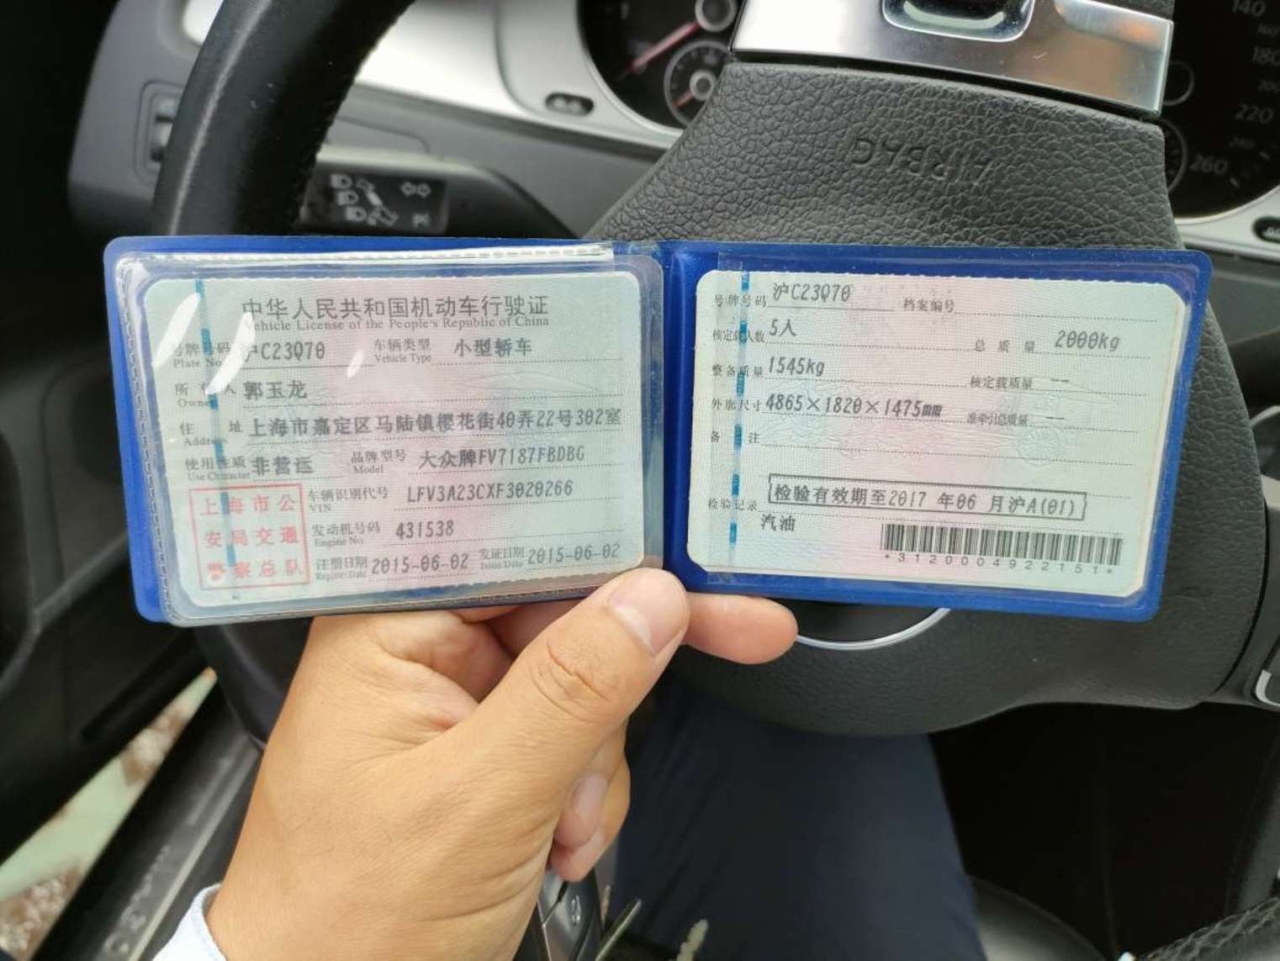 中华人民共和国机动车行驶证
Vehicle License of the People's Republic of China
号牌号码 沪C23Q70 车辆类型 小型轿车
Plate No. Vehicle Type
所有人 郭玉龙
Owner
住 址 上海市嘉定区马陆镇樱花街40弄22号302室
Address
使用性质 非营运 品牌型号 大众牌FV7187FBDBG
Use Character Model
上海市公安局交通警察总队
车辆识别代号 LFV3A23CXF3020266
VIN
发动机号码 431538
Engine No.
注册日期 2015-06-02 发证日期 2015-06-02
Register Date Issue Date
号牌号码 沪C23Q70 档案编号
核定载人数 5人 总 质 量 2000kg
整备质量 1545kg 核定载质量 --
外廓尺寸 4865×1820×1475mm 准牵引总质量 --
备 注
检验记录 检验有效期至2017 年06 月沪A(01)
汽油
*3120004922151*
AIRBAG
140
180
220
240
260